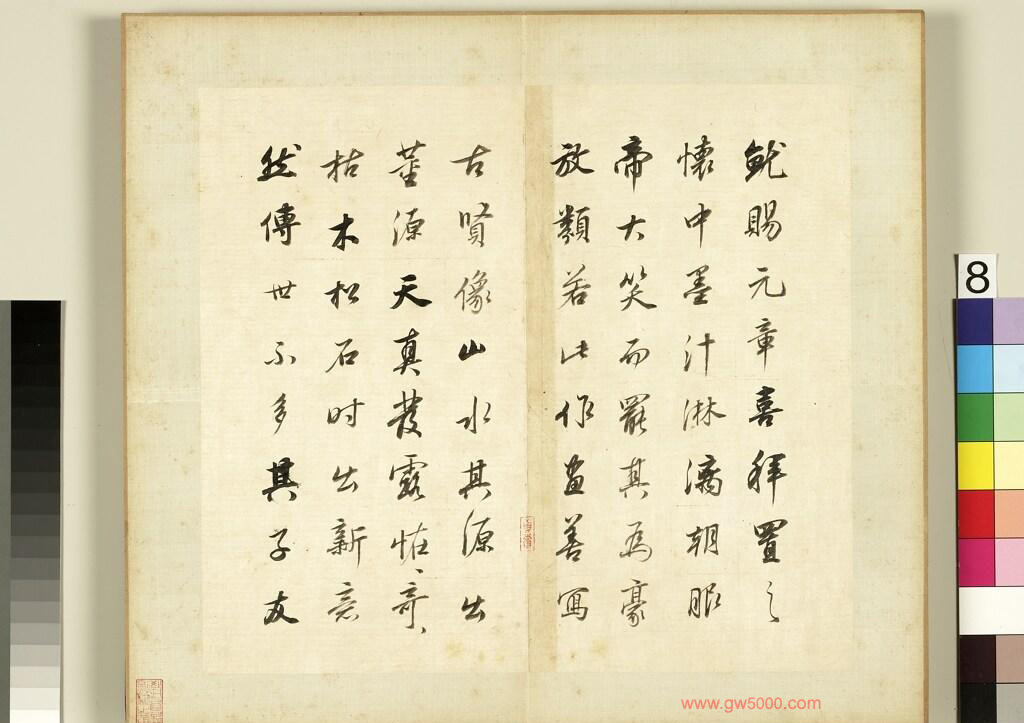 就賜元章喜拜置之
懷中墨汁淋漓朝服
帝大笑而罷其為豪
放類若此作畫善寫
古賢像山水其源出
董源天真發露怪怪奇奇
枯木松石時出新意
然傳世不多其子友
8
www.gw5000.com